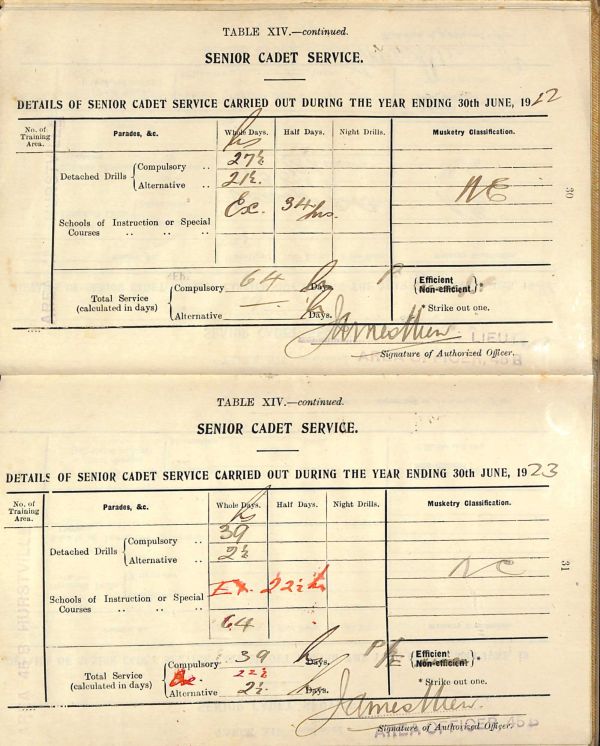 TABLE XIV.—continued.
SENIOR CADET SERVICE.
DETAILS OF SENIOR CADET SERVICE CARRIED OUT DURING THE YEAR ENDING 30th JUNE, 1922
No. of Training Area. Parades, &c. Whole Days. Half Days. Night Drills. Musketry Classification.
hs
Detached Drills { Compulsory .. 27½
Alternative .. 21½
NC
Ex. 34 hrs.
Schools of Instruction or Special
Courses .. .. ..
30
Total Service (calculated in days) { Compulsory 64 Days.
Alternative — Days.
{ Efficient
Non-efficient } *
* Strike out one.
LIEUT.
AREA OFFICER, 45 B
Signature of Authorized Officer.
TABLE XIV.—continued.
SENIOR CADET SERVICE.
DETAILS OF SENIOR CADET SERVICE CARRIED OUT DURING THE YEAR ENDING 30th JUNE, 1923
No. of Training Area. Parades, &c. Whole Days. Half Days. Night Drills. Musketry Classification.
Detached Drills { Compulsory .. 39
Alternative .. 2½
NC
Ex. 22½ h
Schools of Instruction or Special
Courses .. .. ..
64
31
Total Service (calculated in days) { Compulsory 39 Days.
Ex. 22½
Alternative 2½ Days.
{ Efficient
Non-efficient } *
* Strike out one.
AREA OFFICER 45 B
Signature of Authorized Officer.